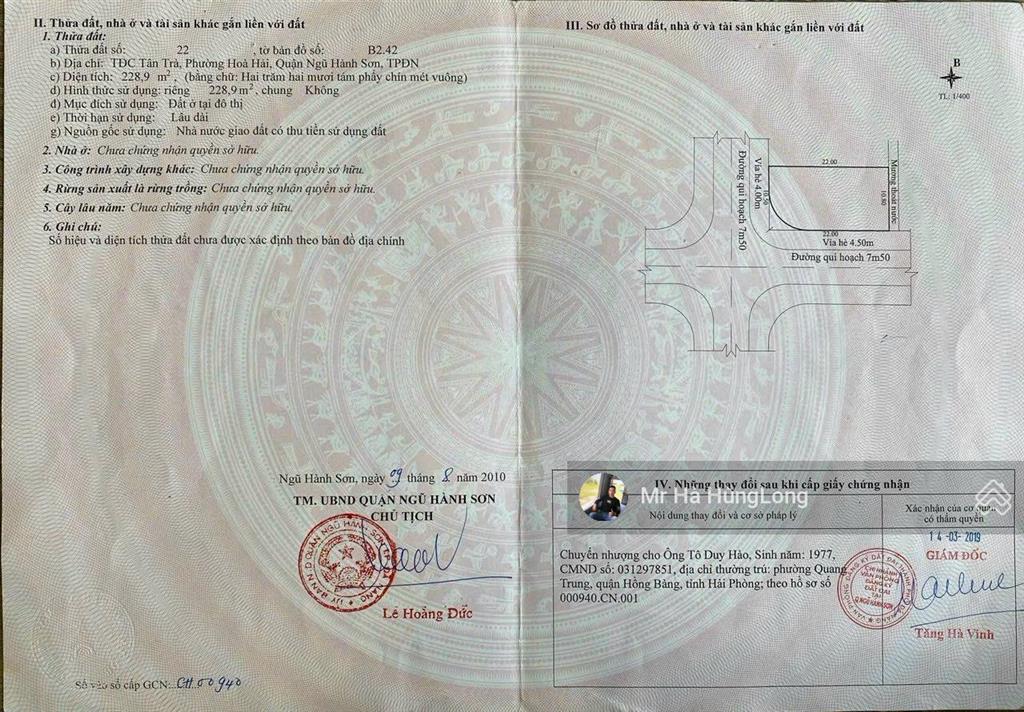 II. Thửa đất, nhà ở và tài sản khác gắn liền với đất
1. Thửa đất:
a) Thửa đất số: 22 , tờ bản đồ số: B2.42
b) Địa chỉ: TĐC Tân Trà, Phường Hoà Hải, Quận Ngũ Hành Sơn, TPĐN
c) Diện tích: 228,9 m², (bằng chữ: Hai trăm hai mươi tám phẩy chín mét vuông)
d) Hình thức sử dụng: riêng 228,9 m², chung Không
đ) Mục đích sử dụng: Đất ở tại đô thị
e) Thời hạn sử dụng: Lâu dài
g) Nguồn gốc sử dụng: Nhà nước giao đất có thu tiền sử dụng đất
2. Nhà ở: Chưa chứng nhận quyền sở hữu.
3. Công trình xây dựng khác: Chưa chứng nhận quyền sở hữu.
4. Rừng sản xuất là rừng trồng: Chưa chứng nhận quyền sở hữu.
5. Cây lâu năm: Chưa chứng nhận quyền sở hữu.
6. Ghi chú:
Số hiệu và diện tích thửa đất chưa được xác định theo bản đồ địa chính
Ngũ Hành Sơn, ngày 09 tháng 8 năm 2010
TM. UBND QUẬN NGŨ HÀNH SƠN
CHỦ TỊCH
Lê Hoàng Đức
Số vào sổ cấp GCN: CH00940
III. Sơ đồ thửa đất, nhà ở và tài sản khác gắn liền với đất
B
TL: 1/400
22.00
Đường qui hoạch 7m50
Vỉa hè 4.00m
10.50
10.50
Mương thoát nước
22.00
Vỉa hè 4.50m
Đường qui hoạch 7m50
IV. Những thay đổi sau khi cấp giấy chứng nhận
Mr Ha HungLong
Nội dung thay đổi và cơ sở pháp lý
Xác nhận của cơ quan
có thẩm quyền
14-03-2019
GIÁM ĐỐC
Chuyển nhượng cho Ông Tô Duy Hào, Sinh năm: 1977,
CMND số: 031297851, địa chỉ thường trú: phường Quang
Trung, quận Hồng Bàng, tỉnh Hải Phòng; theo hồ sơ số
000940.CN.001
CHI NHÁNH
VĂN PHÒNG
ĐĂNG KÝ
ĐẤT ĐAI
TẠI
Q.NGŨ HÀNH SƠN
Tăng Hà Vinh